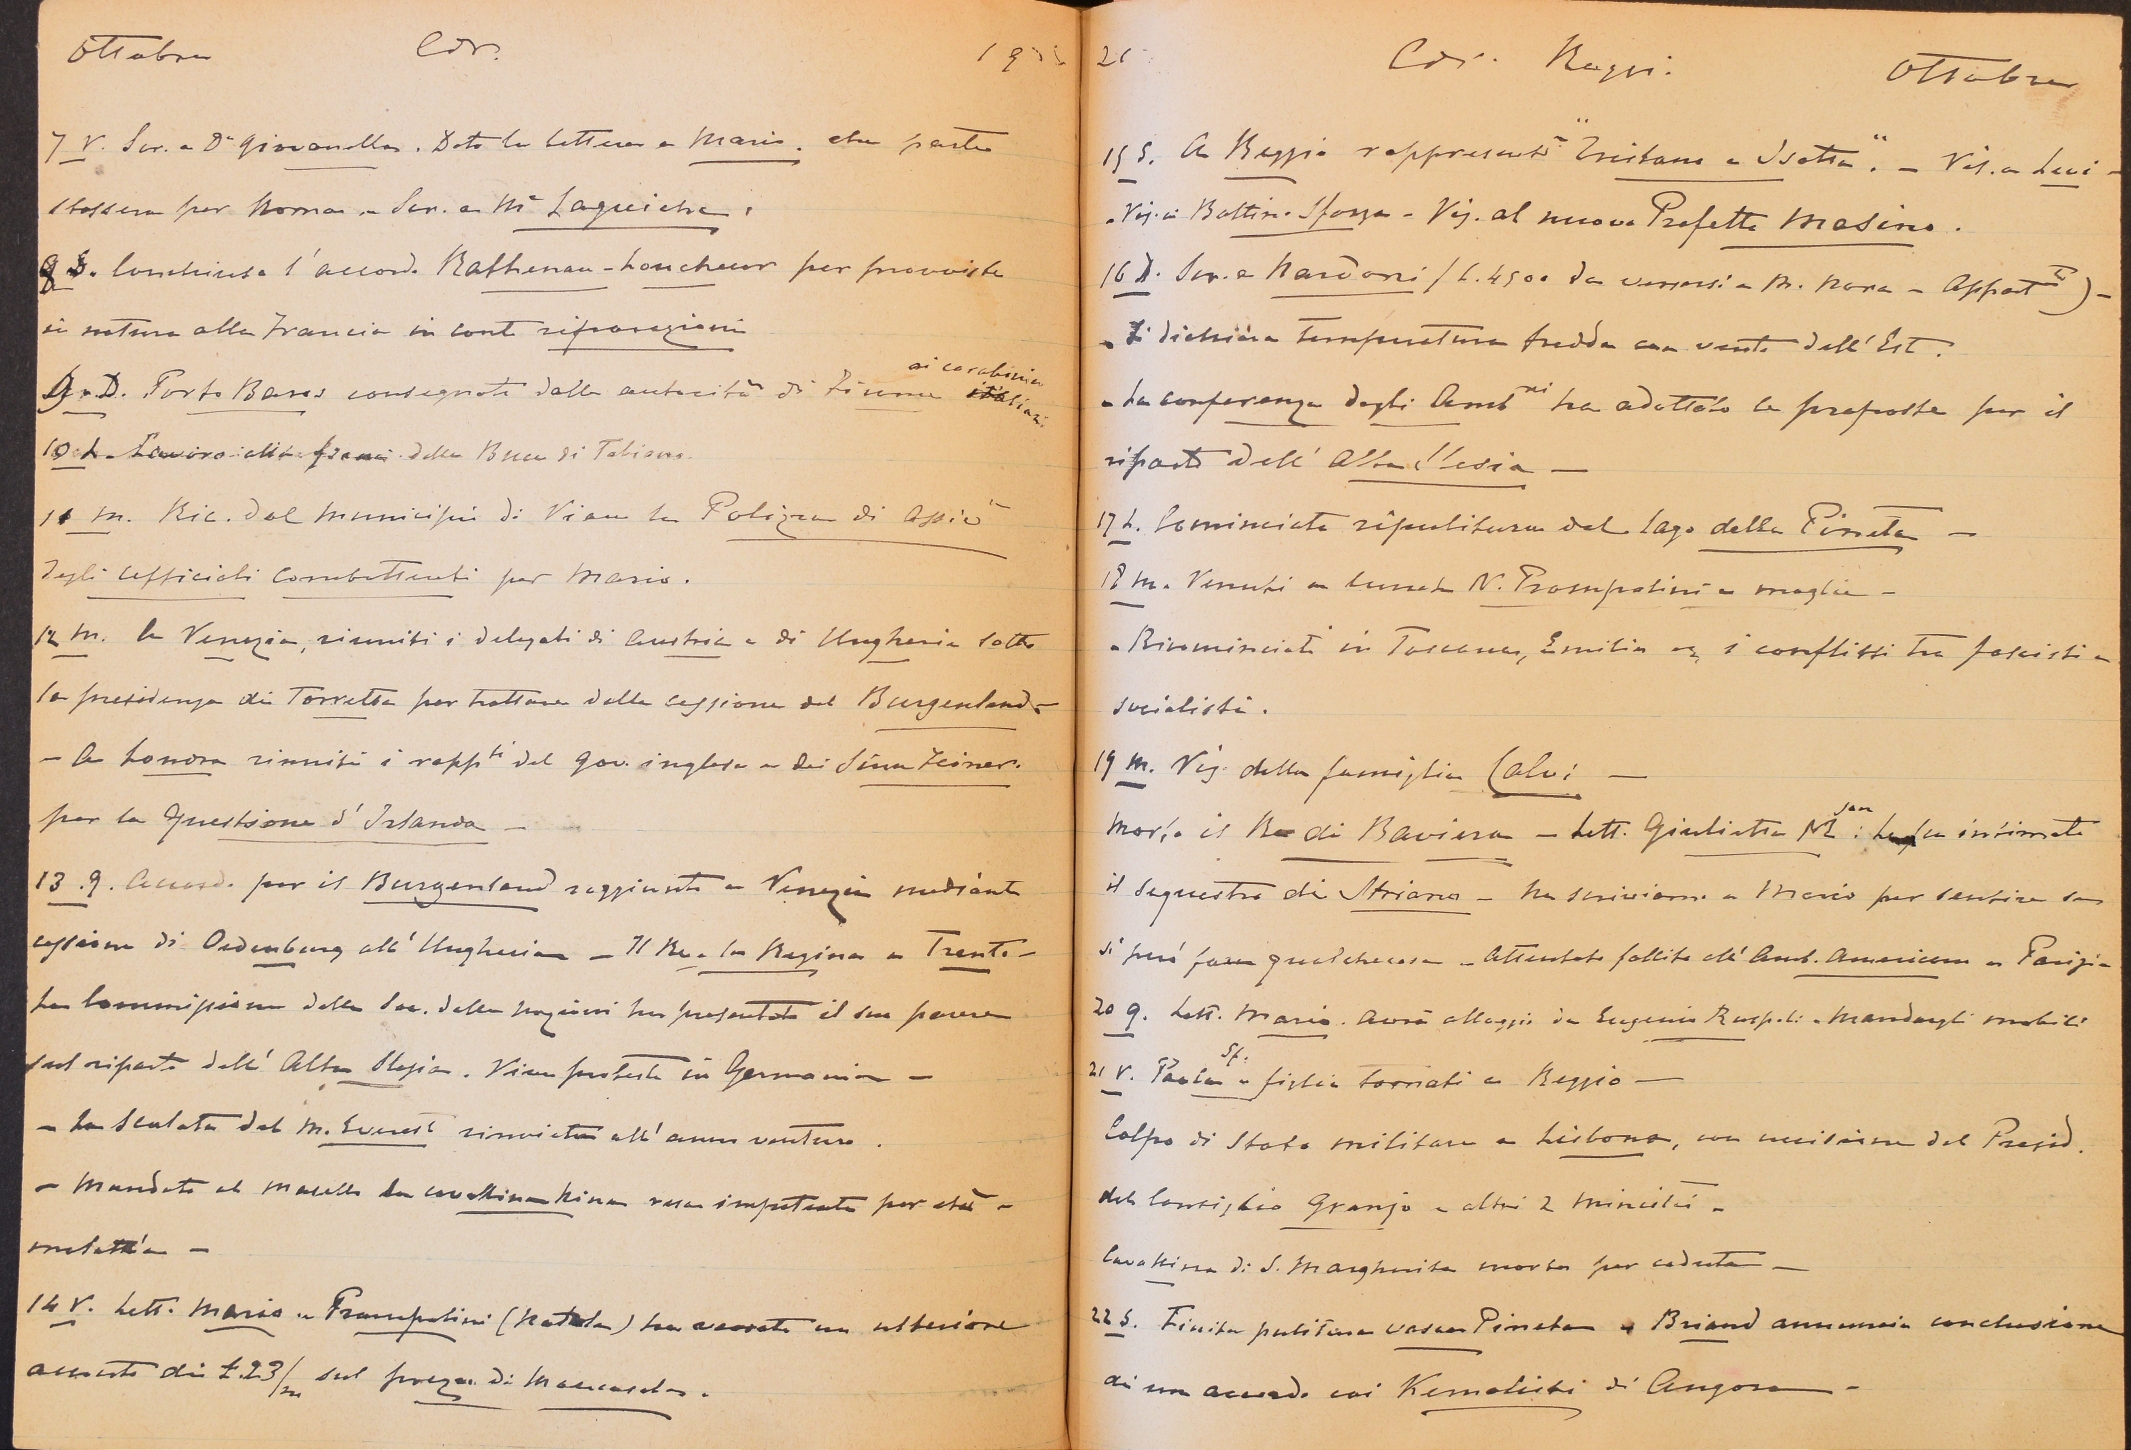 Ottobre Cdr. 19
7 V. Scr. a Dr Giovanella. Dato la lettera a Mario. che parte
stassera per Roma - Scr. a Mr Laguiche.
8 S. Conchiuso l'accordo Rathenau-Loucheur per provviste
in natura alla Francia in conto riparazioni
9. D. Porto Baros consegnato dalle autorità di Fiume ai carabinieri italiani.
10 L. Lavoro della Buca di Tabiano.
11 M. Ric. dal Municipio di Viano la Polizza di Assicne
degli Ufficiali Combattenti per Mario.
12 M. A Venezia, riuniti i delegati di Austria e di Ungheria sotto
la presidenza di Torretta per trattare della cessione del Burgenland -
- A Londra riuniti i rappti del Gov. inglese e dei Sinn Feiner.
per la Questione d'Irlanda -
13. G. Accordo per il Burgenland raggiunto a Venezia mediante
cessione di Oedenburg all'Ungheria - Il Re e la Regina a Trento -
La Commissione della Soc. delle nazioni ha presentato il suo parere
sul riparto dell'Alta Slesia. Vive proteste in Germania -
- La Scalata del M. Everest rinviata all'anno venturo.
- Mandata al macello la cavallina Nina resa impotente per età e
malattia -
14 V. Lett. Mario - Prampolini (Natale) ha versato un ulteriore
acconto di £.23/m sul prezzo di Mancasale.
21 Cdr. Reggi. Ottobre
15 S. A Reggio rappresentne "Tristano e Isotta". - Vis. a Levi -
- Vis. a Battina Sforza - Vis. al nuovo Prefetto Masino.
16 D. Scr. a Nardoni (L. 4500 da versarsi a M. Nora - Appartto) -
- Si dichiara temperatura fredda con vento dell'Est.
- La conferenza degli Ambri ha adottato le proposte per il
riparto dell'Alta Slesia -
17 L. Cominciata ripulitura del Lago della Pineta -
18 M. Venuti a cena N. Prampolini e moglie -
- Ricominciati in Toscana, Emilia ecc i conflitti tra fascisti e
socialisti.
19 M. Vis. della famiglia Calvi -
Morto il Re di Baviera - Lett. Giulietta M. : intimato
il sequestro di Striano - Ne scriviamo a Mario per sentire se
si può fare qualchecosa - Attentato fallito all'Amb. Americano a Parigi -
20 G. Lett. Mario. Avrà alloggio da Eugenio Ruspoli - Mandargli mobili
21 V. Paola Sf. e figlia tornati a Reggio -
Colpo di Stato militare a Lisbona, con uccisione del Presid.
del Consiglio Granjo e altri 2 Ministri -
Cavallina di S. Margherita morta per caduta -
22 S. Finita pulitura vasca Pineta - Briand annuncia conclusione
di un accordo coi Kemalisti di Angora -